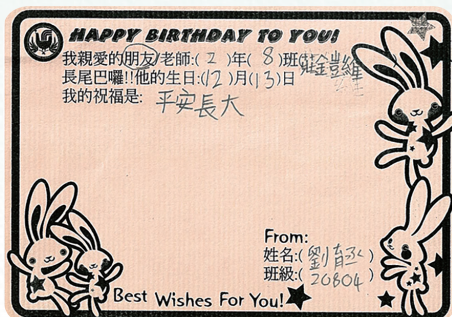 HAPPY BIRTHDAY TO YOU!
我親愛的朋友/老師:(2)年(8)班
長尾巴囉!!他的生日:(12)月(13)日
我的祝福是: 平安長大
From:
姓名:(劉育丞)
班級:(20804)
Best Wishes For You!